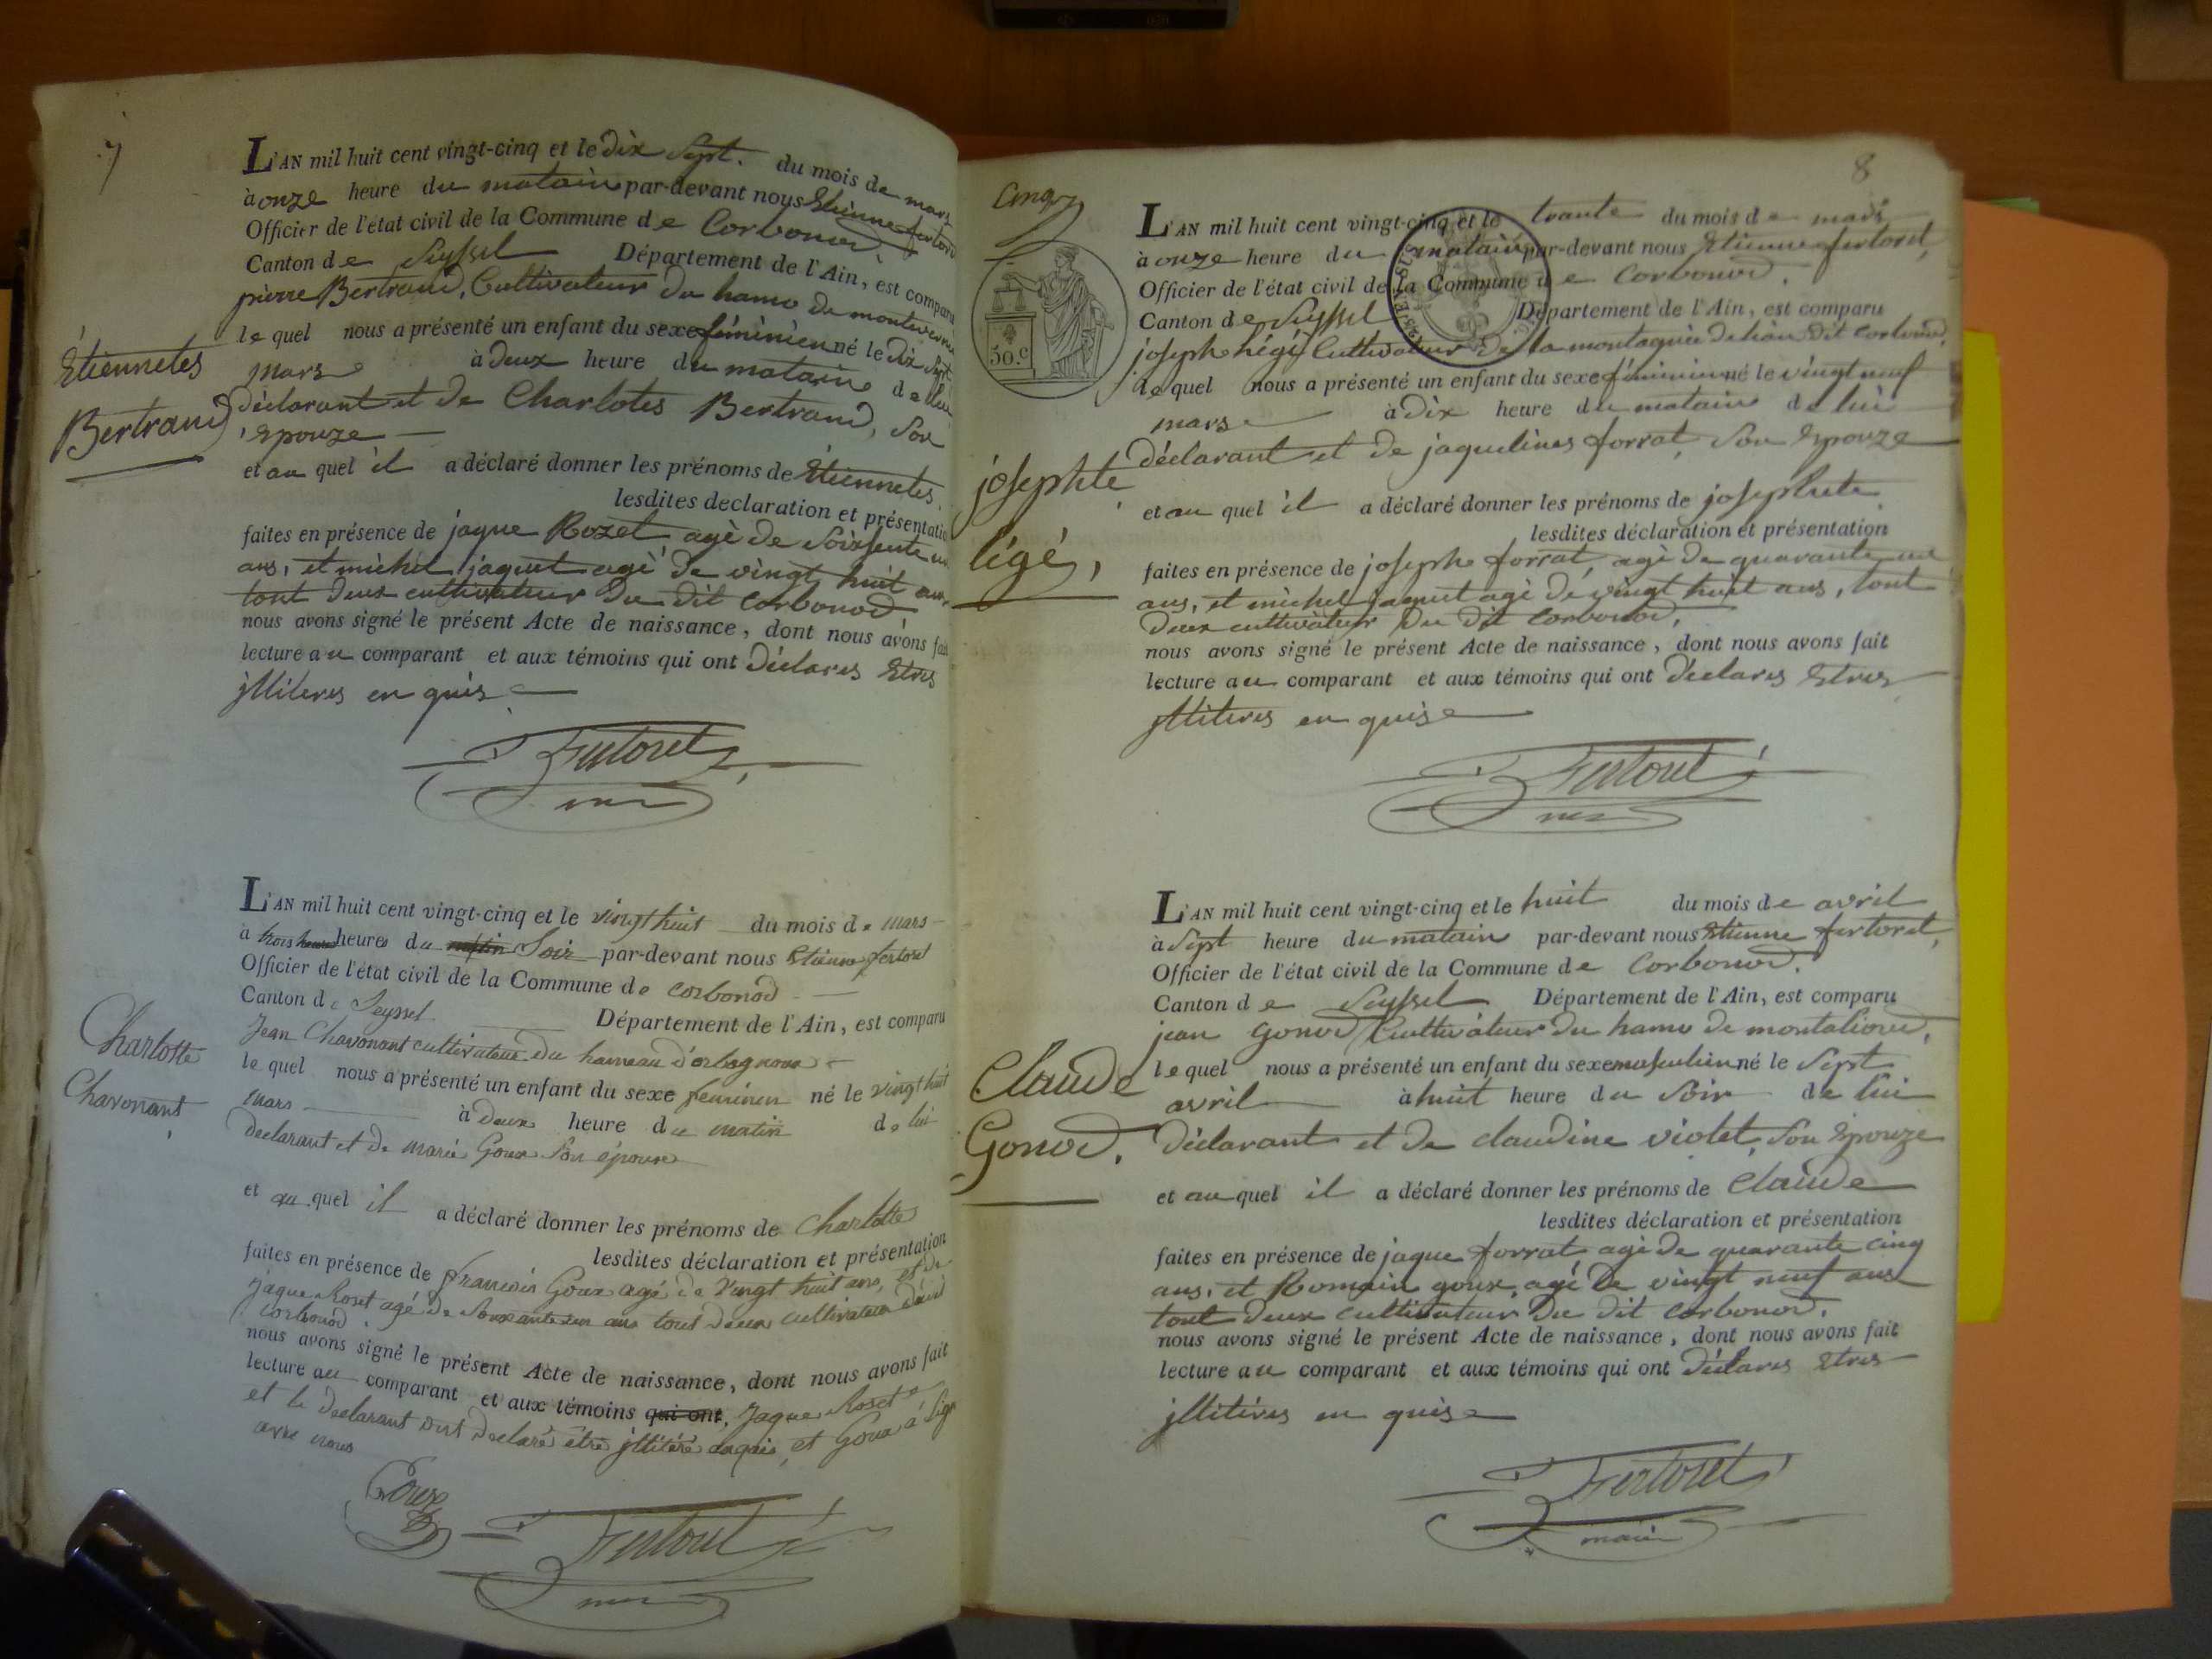 7
L'AN mil huit cent vingt-cinq et le dix Sept. du mois de mars
à onze heure du matain par-devant nous Etienne fertoret
Officier de l'état civil de la Commune de Corbonod
Canton de Seyssel Département de l'Ain, est comparu
pierre Bertrand, Cultivateur du hamo de
le quel nous a présenté un enfant du sexe féminien né le dix Sept
mars à deux heure du mataine de lui
déclarant et de Charlotes Bertrand, Son
Epouze
et au quel il a déclaré donner les prénoms de Etiennetes
lesdites declaration et présentation
faites en présence de jaque Rozet agè de Soixsente un
ans, et michel jaquet agè de vingt huit ans,
tout deux cultivateur du dit Corbonod
nous avons signé le présent Acte de naissance, dont nous avons fait
lecture au comparant et aux témoins qui ont déclares Etres
jlliteres en quis
Fertoret
Etiennetes
Bertrand
L'AN mil huit cent vingt-cinq et le vingt huit du mois de mars
à trois heures heures du matin Soir par-devant nous Etienne fertoret
Officier de l'état civil de la Commune de corbonod
Canton de Seyssel Département de l'Ain, est comparu
Jean Chavonant cultivateur du hameau d'orbagnoux
le quel nous a présenté un enfant du sexe feminin né le vingt huit
mars à deux heure du matin de lui
declarant et de marie Goux Son épouse
et au quel il a déclaré donner les prénoms de Charlotte
lesdites déclaration et présentation
faites en présence de francois Goux agé de vingt huit ans, et de
jaque Roset agé de Soixante un ans tout deux cultivateur dudit
Corbonod
nous avons signé le présent Acte de naissance, dont nous avons fait
lecture au comparant et aux témoins qui ont, Jaque Roset
et le declarant ont declaré être jlliteré enquis, et Goux a signé
avec nous
Goux
Fertoret
Charlotte
Chavonant
8
Cinq
50.c
L'AN mil huit cent vingt-cinq et le trante du mois de mars
à onze heure du matain par-devant nous Etienne fertoret,
Officier de l'état civil de la Commune de Corbonod.
Canton de Seyssel Département de l'Ain, est comparu
joseph légé Cultivateur de la montagnie de dit corbonod,
le quel nous a présenté un enfant du sexe féminien né le vingt neuf
mars à dix heure du mataine de lui
déclarant et de jaquelines forrat, Son Epouze
et au quel il a déclaré donner les prénoms de josephete
lesdites déclaration et présentation
faites en présence de josephe forrat, agè de quarante un
ans, et michel jaquet agè de vingt huit ans, tout
deux cultivateur du dit Corbonod,
nous avons signé le présent Acte de naissance, dont nous avons fait
lecture au comparant et aux témoins qui ont déclares Etres
jlliteres en quise
Fertoret
josephte
légé,
L'AN mil huit cent vingt-cinq et le huit du mois de avril
à Sept heure du mataine par-devant nous Etienne fertoret,
Officier de l'état civil de la Commune de Corbonod.
Canton de Seyssel Département de l'Ain, est comparu
jean Gonod Cultivateur du hamo de
le quel nous a présenté un enfant du sexe masculien né le Sept
avril à huit heure du Soir de lui
déclarant et de claudine violet, Son Epouze
et au quel il a déclaré donner les prénoms de Claude
lesdites déclaration et présentation
faites en présence de jaque forrat agè de quarante cinq
ans, et Romain goux, agé de vingt neuf ans
tout deux cultivateur du dit corbonod.
nous avons signé le présent Acte de naissance, dont nous avons fait
lecture au comparant et aux témoins qui ont déclares Etres
jlliteres en quise
Fertoret
maire
Claude
Gonod.